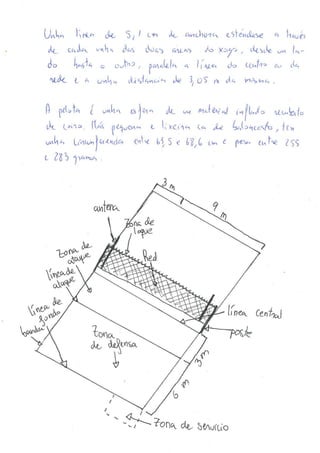 Unha línea de 5,1 cm de anchura esténdese a través
de cada unha das dúas áreas do xogo, desde un la-
do hasta o outro, paralela a línea do centro ou da
rede e a unha distancia de 3,05 m da mesma.
A pelota é unha esfera de un material inflado recuberto
de coiro. Máis pequena e lixeira ca de baloncesto, ten
unha circunferencia entre 63,5 e 68,6 cm e pesa entre 255
e 283 gramos.
3 m
9 m
antena
Zona de
toque
Zona de
ataque
Red
línea de
ataque
línea de
fondo
banda
línea central
poste
Zona
de defensa
3 m
6 m
Zona de servicio